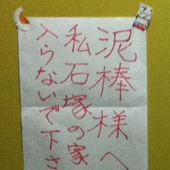 泥棒様へ
私石塚の家
入らないで下さ